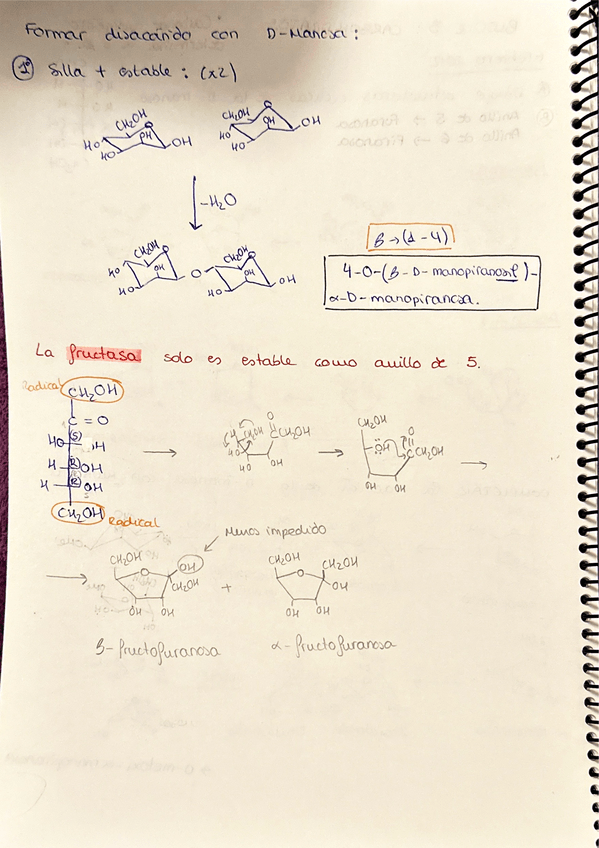 Formar disacárido con D-Manosa:
1º Silla + estable: (x2)
CH₂OH O OH HO HO OH
CH₂OH O OH HO HO OH
-H₂O
CH₂OH O HO OH HO O CH₂OH O OH HO OH
β→(1-4)
4-O-(β-D-manopiranosil)-
α-D-manopiranosa.
La fructosa solo es estable como anillo de 5.
Radical CH₂OH
C = O
HO (S) H
H (R) OH
H (R) OH
CH₂OH Radical
H CH₂OH O C CH₂OH HO HO OH
CH₂OH OH O C CH₂OH OH OH
Menos impedido
CH₂OH O OH CH₂OH OH OH
+
CH₂OH O CH₂OH OH OH OH
β-fructofuranosa
α-fructofuranosa